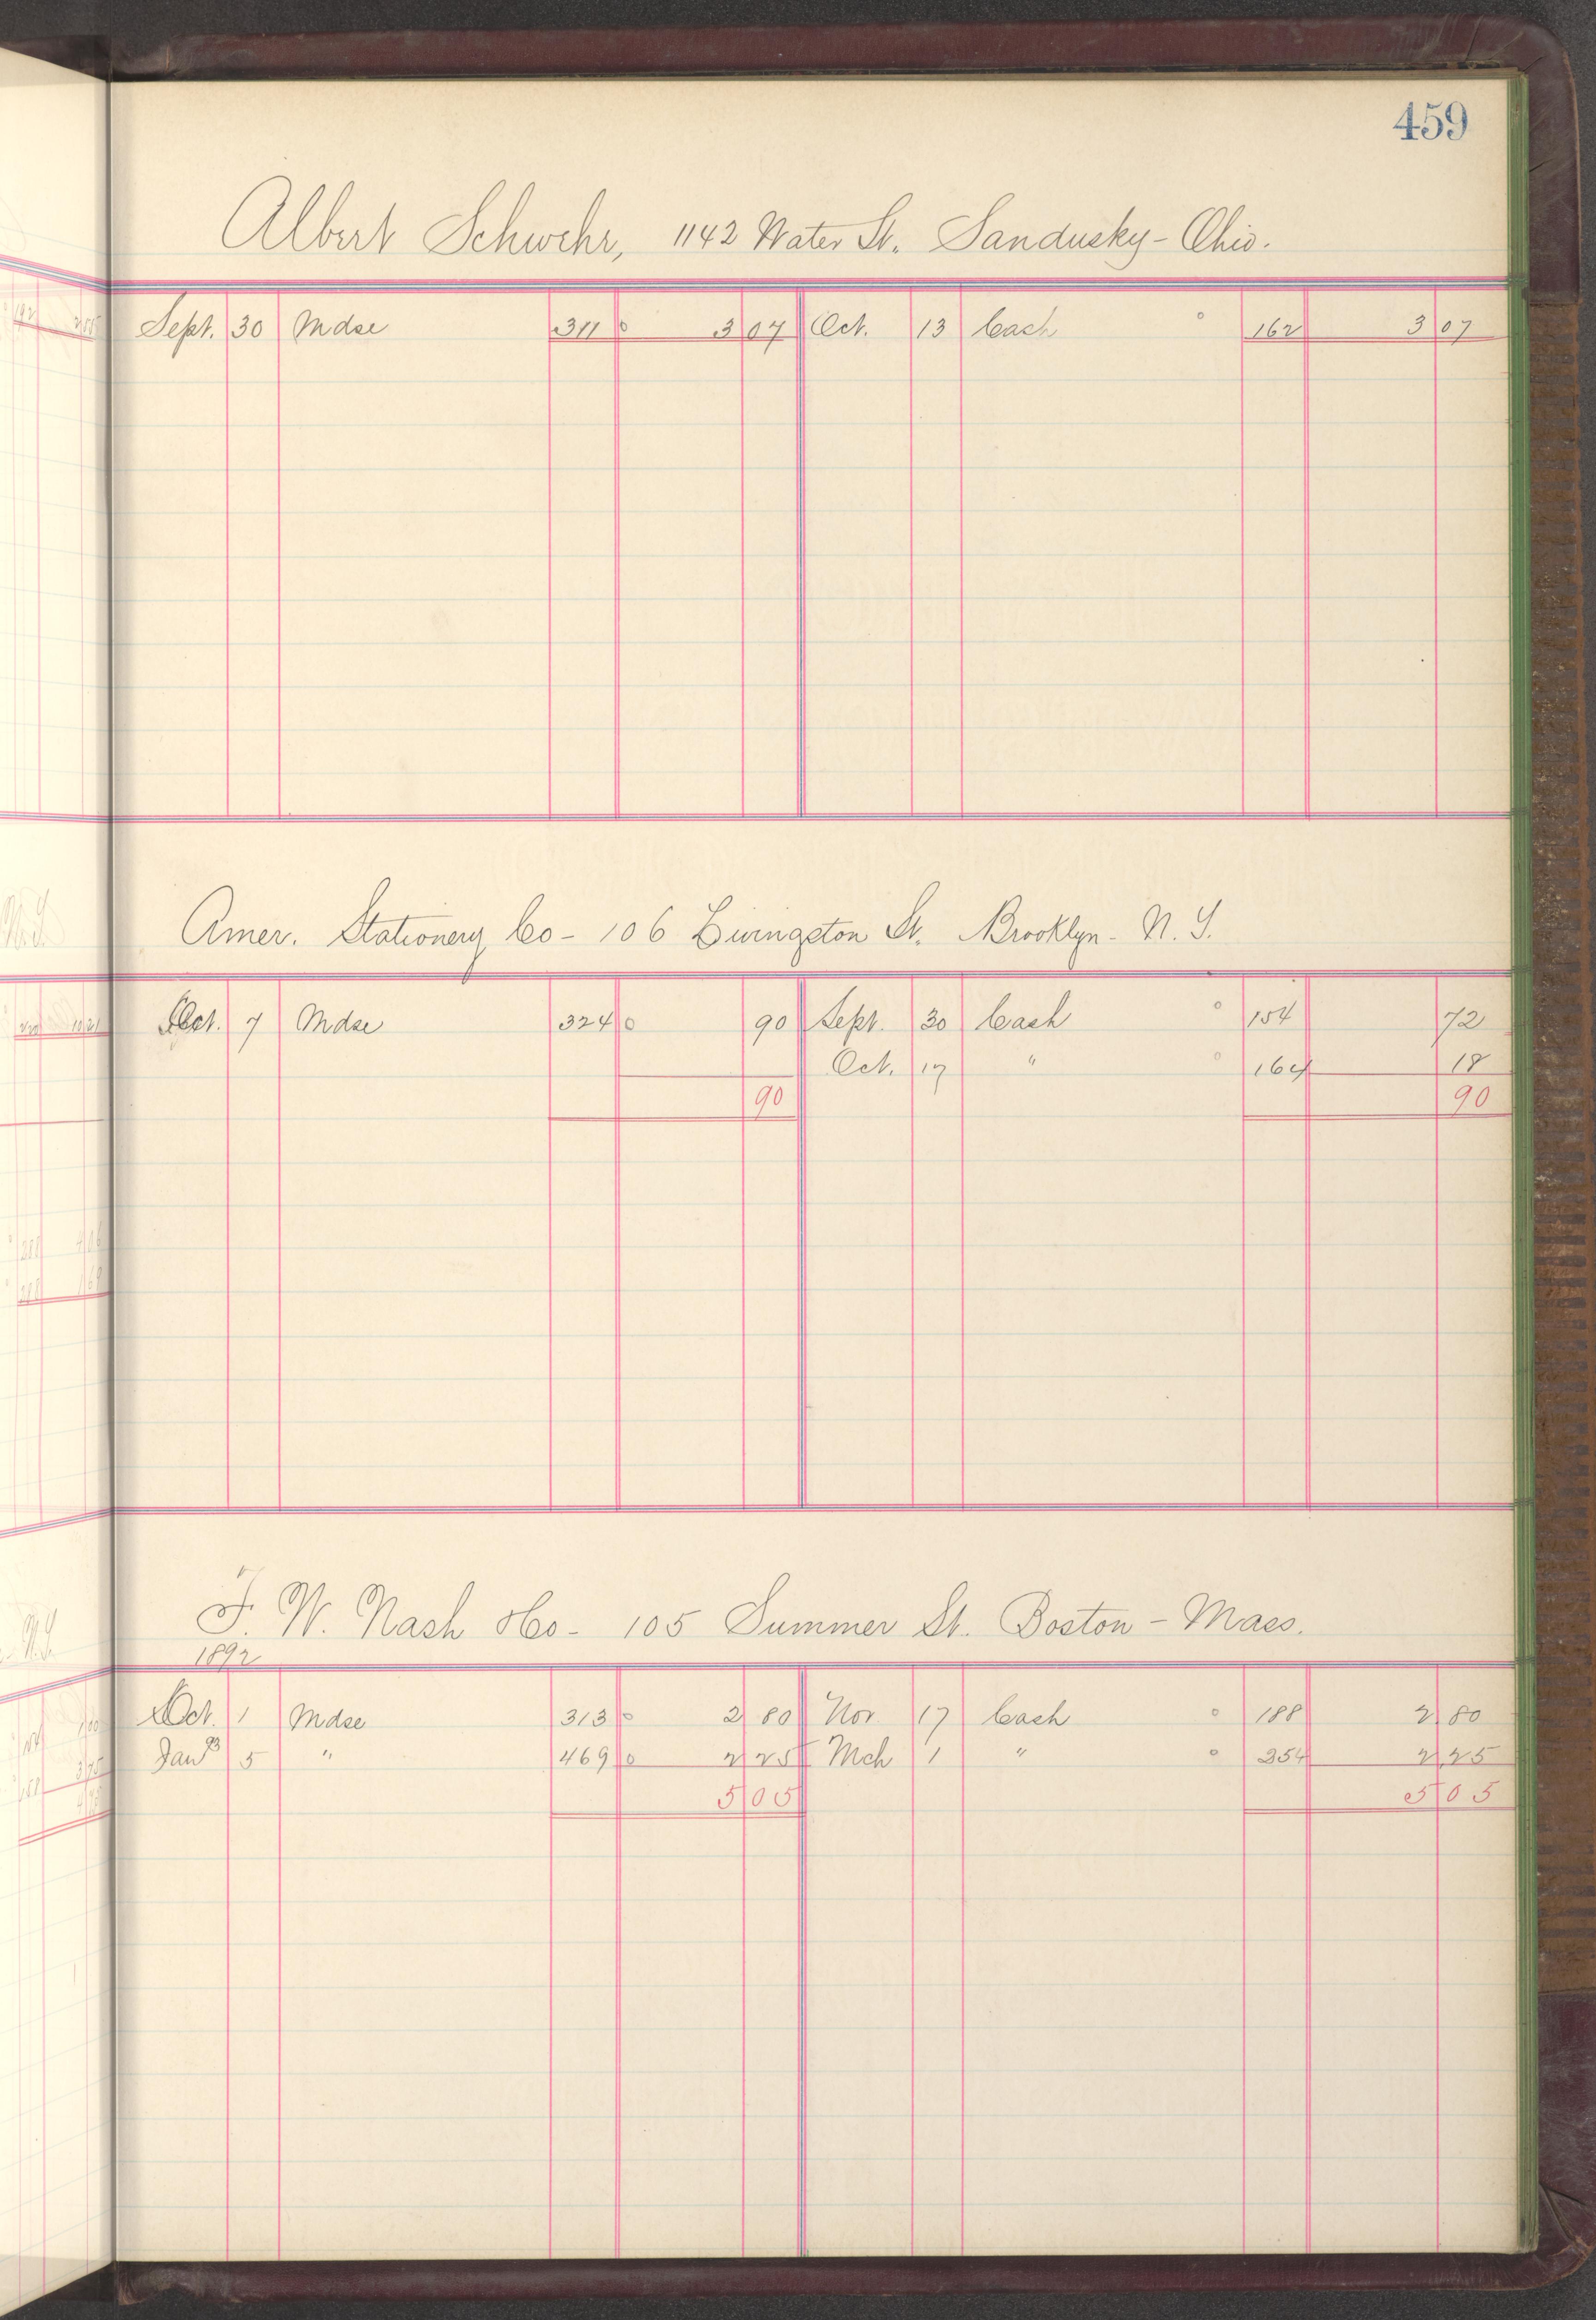 459
Albert Schwehr, 1142 Water St. Sandusky - Ohio.
Sept. 30 Mdse 311 3 07 Oct. 13 Cash 162 3 07
Amer. Stationery Co - 106 Livingston St. Brooklyn - N. Y.
Oct. 7 Mdse 324 90 Sept. 30 Cash 154 72
Oct. 17 " 164 18
90 90
F. W. Nash & Co - 105 Summer St. Boston - Mass.
1892
Oct. 1 Mdse 313 2 80 Nov 17 Cash 188 2 80
Jan 93 5 " 469 2 25 Mch 1 " 254 2 25
5 05 5 05